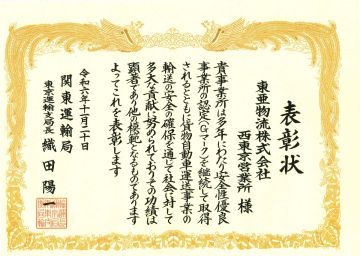 表彰状
東亜物流株式会社
西東京営業所 様
貴事業所は多年にわたり安全性優良
事業所の認定(Gマーク)を継続して取得
されるとともに貨物自動車運送事業の
輸送の安全の確保を通じて社会に対して
多大な貢献に努められておりその功績は
顕著であり他の模範となるものであります
よってこれを表彰します
令和六年十一月二十日
関東運輸局
東京運輸支局長 織田陽一